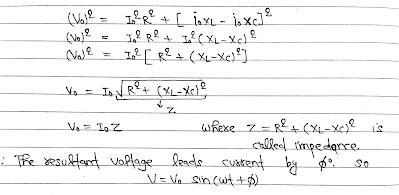 (V₀)² = I₀²R² + [i₀XL - i₀XC]²
(V₀)² = I₀²R² + I₀²(XL-XC)²
(V₀)² = I₀²[R² + (XL-XC)²]
V₀ = I₀ √R² + (XL-XC)²
↓ Z
V₀ = I₀ Z where Z = R² + (XL-XC)² is
called impedance.
: The resultant voltage leads current by φ°. so
V = V₀ sin(ωt + φ)